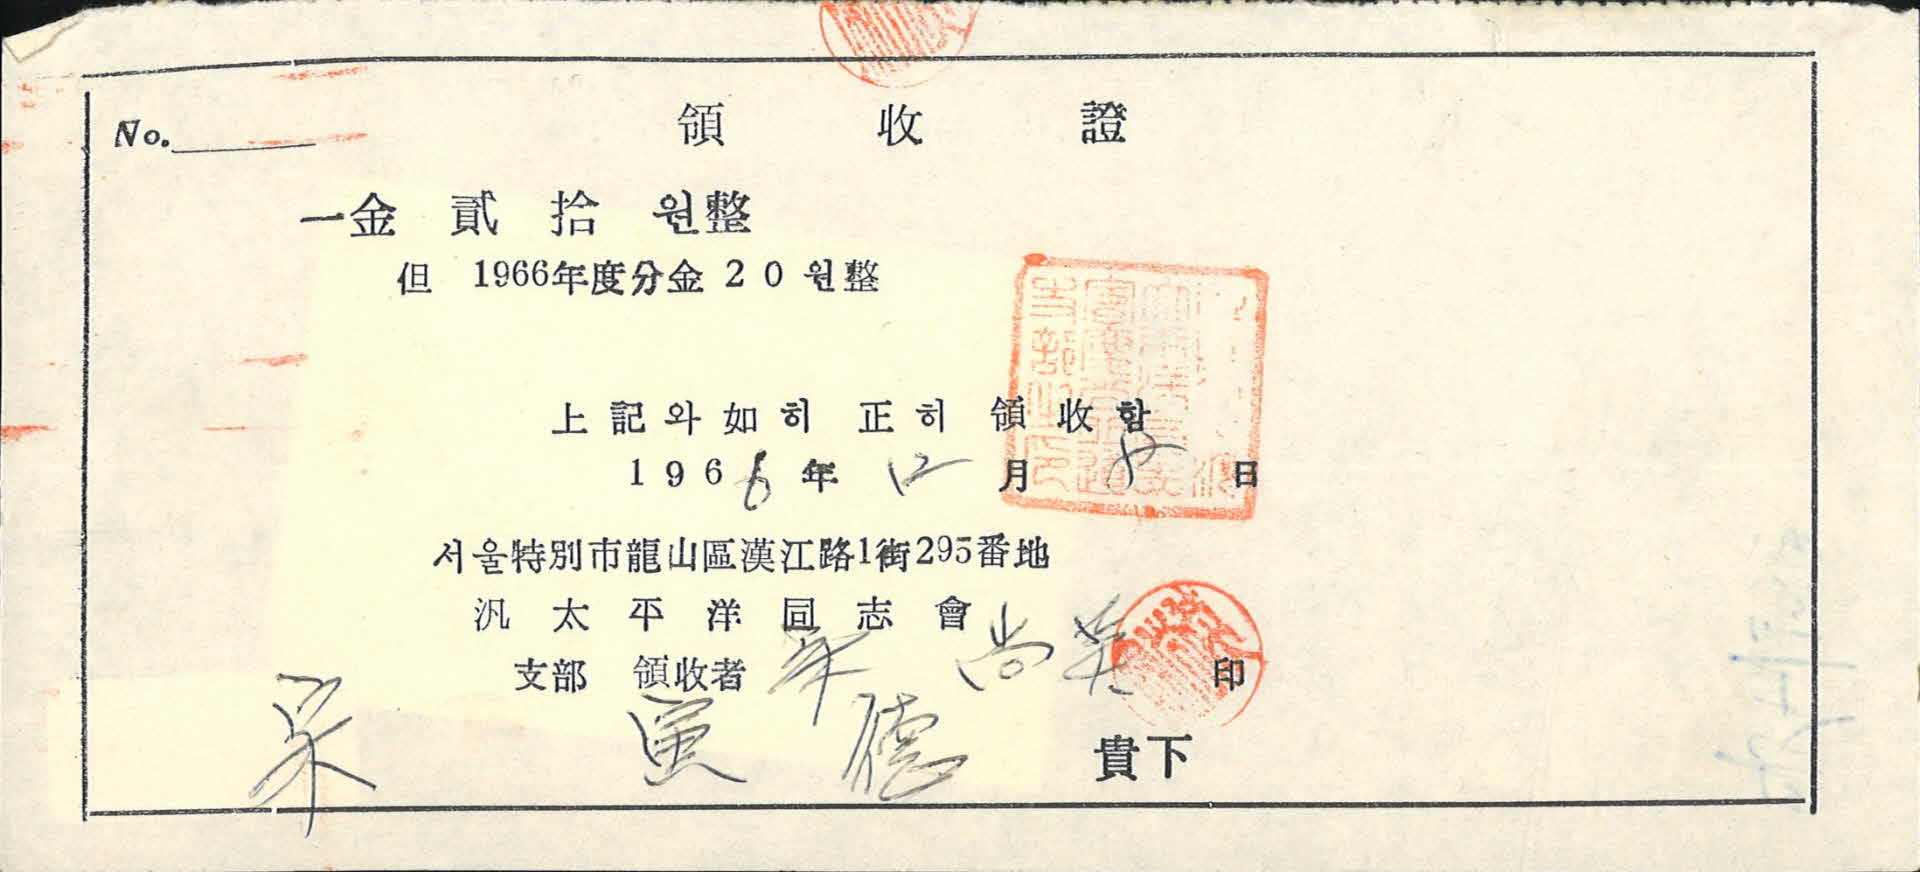 No.
領收證
一金 貳拾 원整
但 1966年度分金 20 원整
上記와 如히 正히 領收함
1966年 12月 日
서울特別市龍山區漢江路1街295番地
汎太平洋同志會
支部 領收者 宋尚英 印
宋寅德 貴下